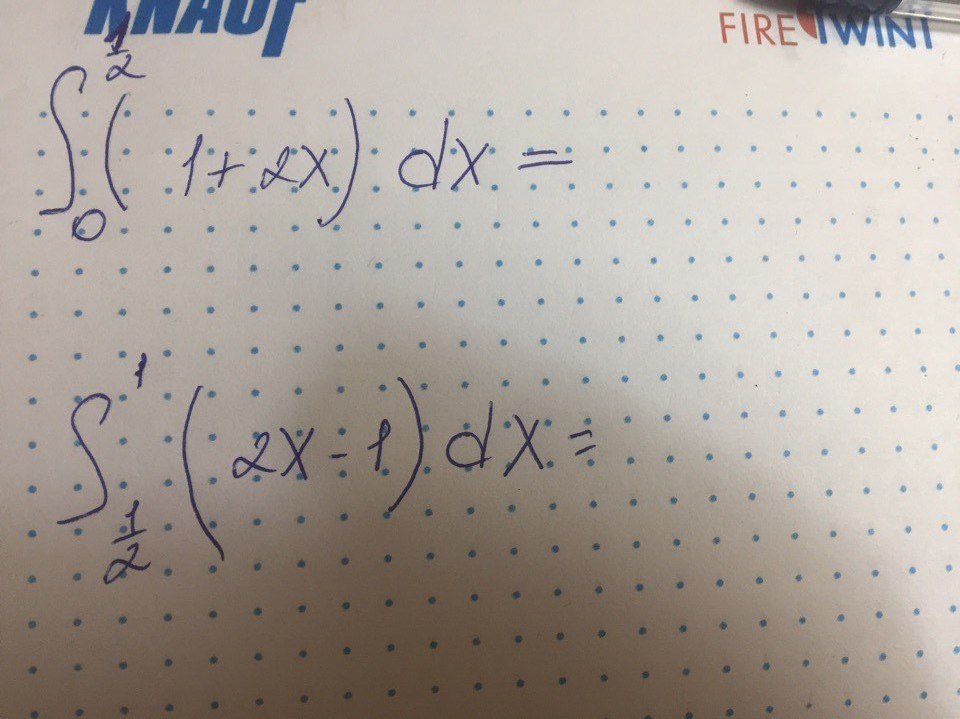 KNAUF FIRETWIN
∫₀^½ (1+2x) dx =
∫_½^1 (2x-1) dx =